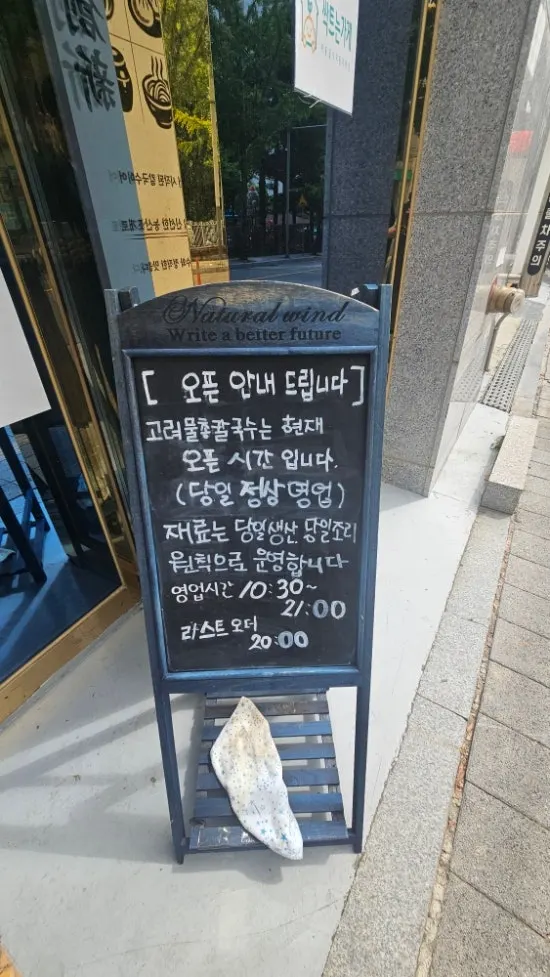 創
新
싹트는가게
Natural wind
Write a better future
[ 오픈 안내 드립니다 ]
고려물총칼국수는 현재
오픈 시간 입니다.
(당일 정상 영업)
재료는 당일생산, 당일조리
원칙으로 운영합니다
영업시간 10:30~
21:00
라스트 오더
20:00
차주의